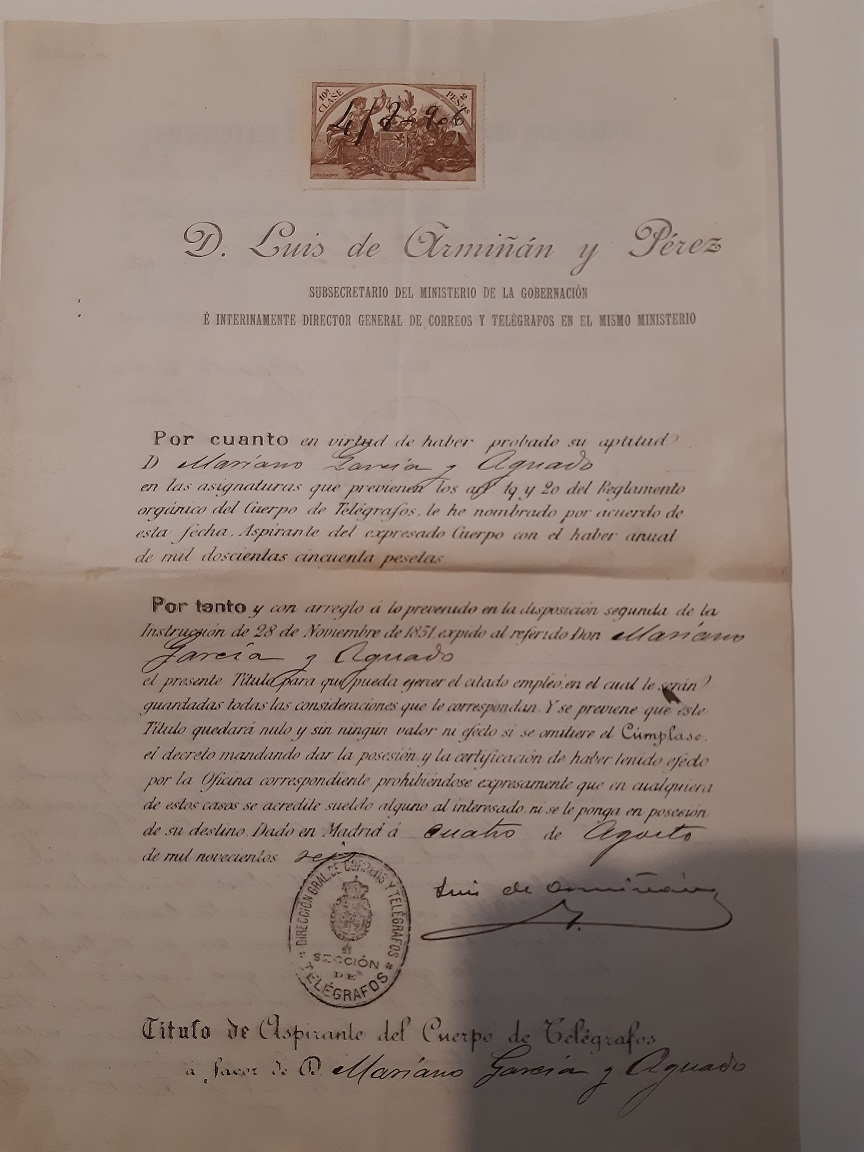 10ª CLASE
2 PESTAS
4/8-906
D. Luis de Armiñán y Pérez
SUBSECRETARIO DEL MINISTERIO DE LA GOBERNACIÓN
É INTERINAMENTE DIRECTOR GENERAL DE CORREOS Y TELÉGRAFOS EN EL MISMO MINISTERIO
Por cuanto en virtud de haber probado su aptitud
D Mariano García y Aguado
en las asignaturas que previenen los art 19 y 20 del Reglamento
orgánico del Cuerpo de Telégrafos, le he nombrado por acuerdo de
esta fecha, Aspirante del expresado Cuerpo con el haber anual
de mil doscientas cincuenta pesetas
Por tanto y con arreglo á lo prevenido en la disposición segunda de la
Instrucción de 28 de Noviembre de 1851 expido al referido Don Mariano
García y Aguado
el presente Título para que pueda ejercer el citado empleo, en el cual le serán
guardadas todas las consideraciones que le correspondan. Y se previene que este
Título quedará nulo y sin ningún valor ni efecto si se omitiere el Cúmplase,
el decreto mandando dar la posesión y la certificación de haber tenido efecto
por la Oficina correspondiente prohibiéndose expresamente que en cualquiera
de estos casos se acredite sueldo alguno al interesado, ni se le ponga en posesión
de su destino. Dado en Madrid á cuatro de Agosto
de mil novecientos seis
Luis de Armiñán
DIRECCIÓN GRAL DE CORREOS Y TELÉGRAFOS
SECCIÓN
DE
TELÉGRAFOS
Título de Aspirante del Cuerpo de Telégrafos
á favor de D. Mariano García y Aguado